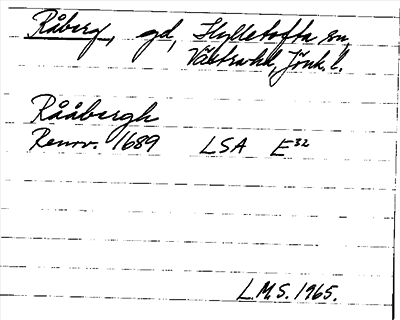 Råberg, gd, Hylletofta sn,
Västra hd, Jönk. l.
Rååbergh
Renov. 1689 LSA E32
L.M.S. 1965.